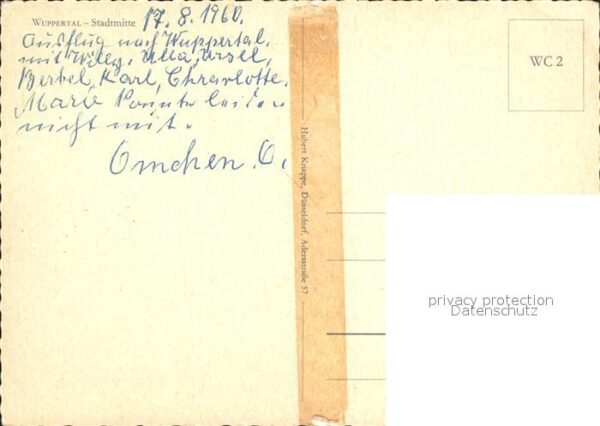 WUPPERTAL – Stadtmitte 17. 8. 1960.
Ausflug nach Wuppertal.
mit Willy, Ulla, Ursel,
Berbel, Karl, Chrarlotte.
Marie konnte leider
nicht mit.
Omchen. O.
WC 2
Hubert Knappe, Düsseldorf, Adersstraße 57
privacy protection
Datenschutz